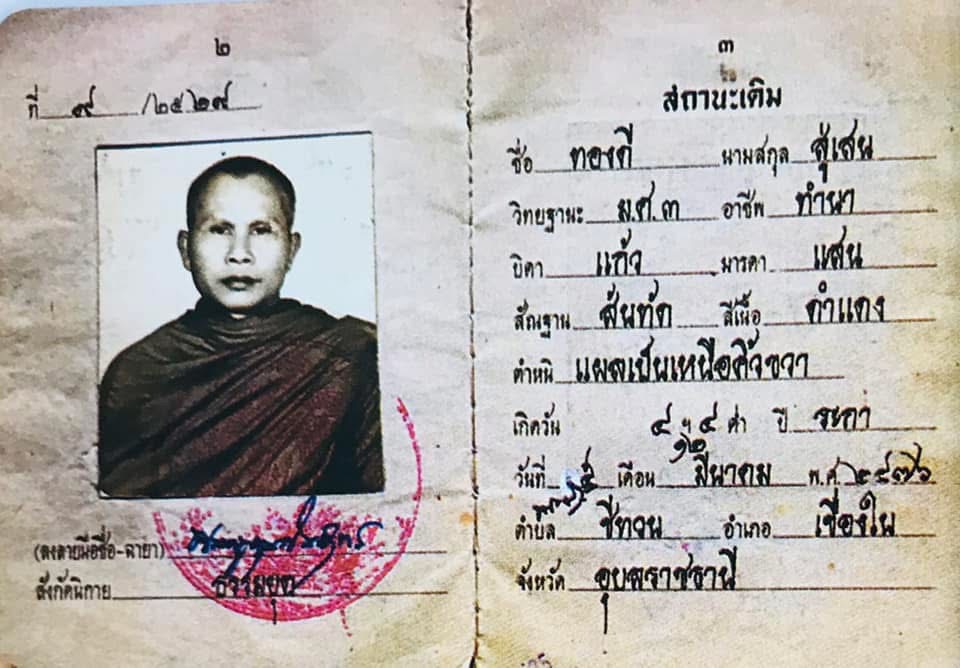 ๒
ที่ ๙ /๒๕๒๙
(ลงลายมือชื่อ-ฉายา)
สังกัดนิกาย ธรรมยุต
๓
สถานะเดิม
ชื่อ ทองดี นามสกุล สู่เสน
วิทยฐานะ ม.ศ.๓ อาชีพ ทำนา
บิดา แก้ว มารดา แสน
สัณฐาน สันทัด สีเนื้อ ดำแดง
ตำหนิ แผลเป็นเหนือคิ้วขวา
เกิดวัน ๔ ฯ ๔ ค่ำ ปี ระกา
๑๒
วันที่ ๕ เดือน มีนาคม พ.ศ. ๒๔๗๖
ตำบล ชีทวน อำเภอ เขื่องใน
จังหวัด อุบลราชธานี